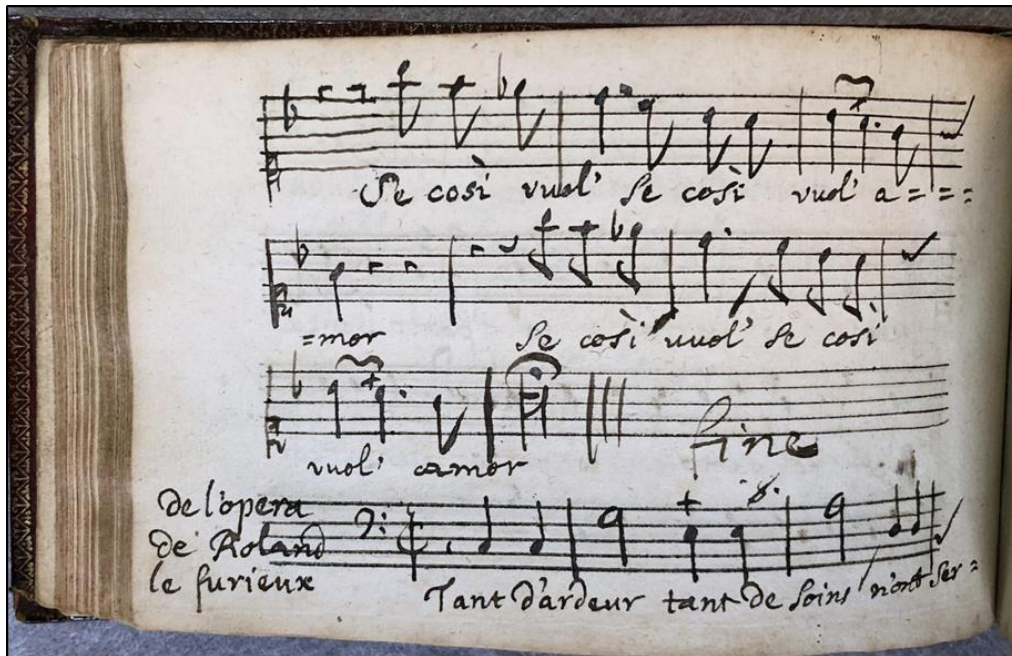 Se così vuol' se così vuol a = = =
=mor Se così vuol' se così
vuol' amor
fine
de l'opera
de Roland
le furieux
Tant d'ardeur tant de soins n'ont ser =